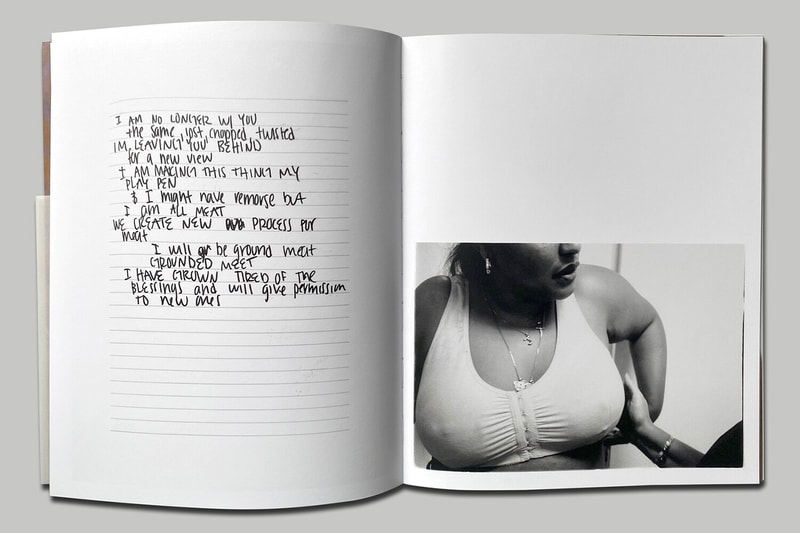 I AM NO LONGER W/ YOU
the same, lost, chopped, twisted
IM, LEAVING YOU BEHIND
for a new view
I AM MAKING THIS THING MY
PLAY PEN
& I might have remorse but
I am ALL MEAT
WE CREATE NEW PROCESS for
meat
I will be ground meat
GROUNDED MEET
I HAVE GROWN TIRED OF the
BLESSINGS and will give permission
to new ones